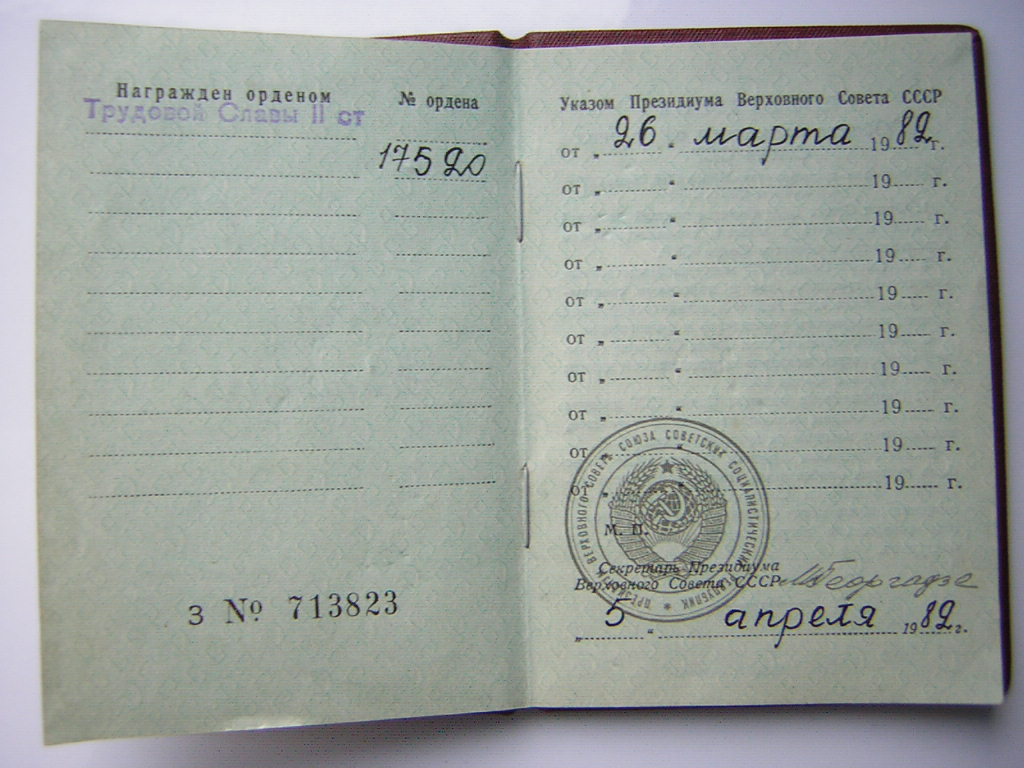 Награжден орденом
Трудовой Славы II ст
№ ордена
17520
З № 713823
Указом Президиума Верховного Совета СССР
от „ 26 “ марта 1982 г.
от „ “ 19 г.
от „ “ 19 г.
от „ “ 19 г.
от „ “ 19 г.
от „ “ 19 г.
от „ “ 19 г.
от „ “ 19 г.
от „ “ 19 г.
от „ “ 19 г.
ПРЕЗИДИУМ ВЕРХОВНОГО СОВЕТА СОЮЗА СОВЕТСКИХ СОЦИАЛИСТИЧЕСКИХ РЕСПУБЛИК
М. П.
Секретарь Президиума
Верховного Совета СССР МГеоргадзе
„ 5 “ апреля 1982 г.